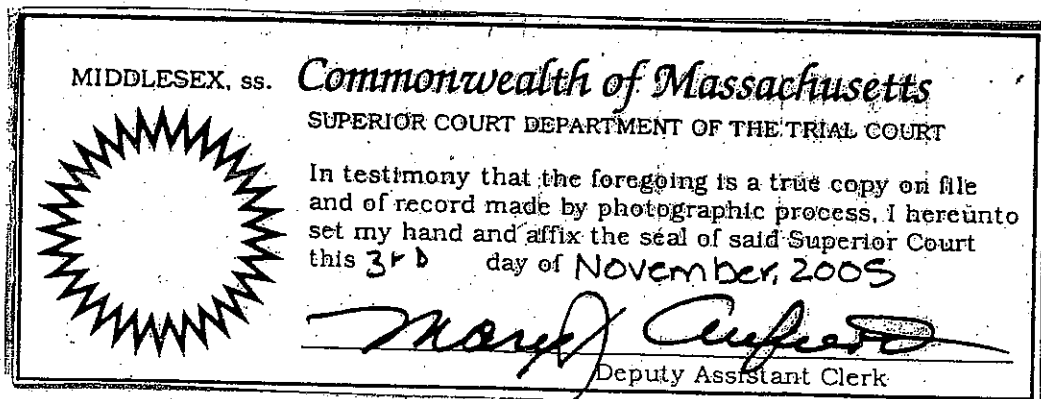 MIDDLESEX, ss. Commonwealth of Massachusetts
SUPERIOR COURT DEPARTMENT OF THE TRIAL COURT
In testimony that the foregoing is a true copy on file
and of record made by photographic process, I hereunto
set my hand and affix the seal of said Superior Court
this 3rD day of November, 2005
Mary
Deputy Assistant Clerk